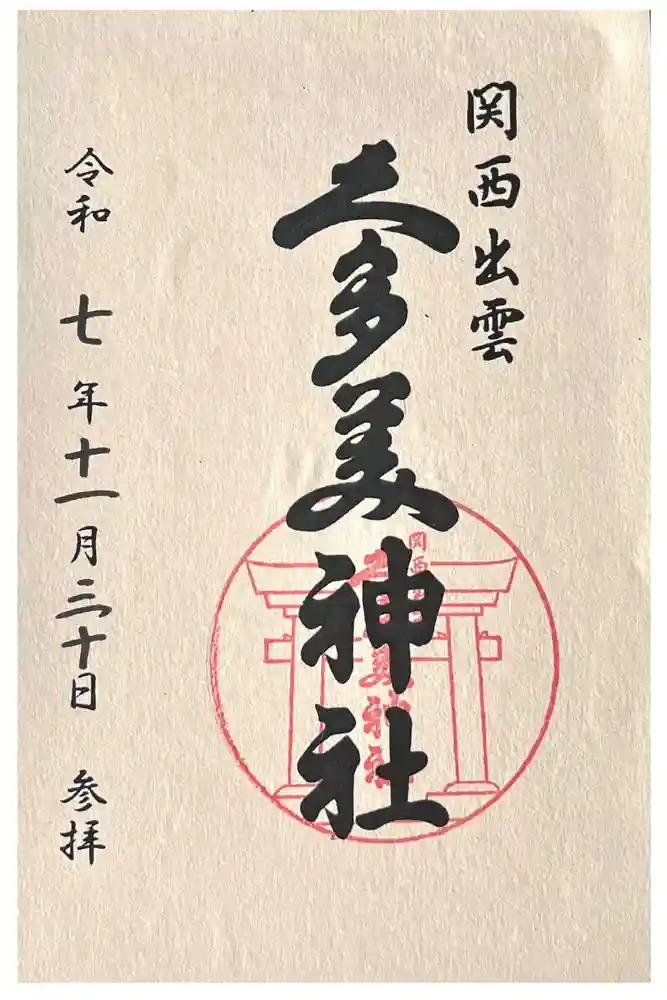 関西出雲
久多美神社
関西
美神社
令和 七年十一月三十日 参拝